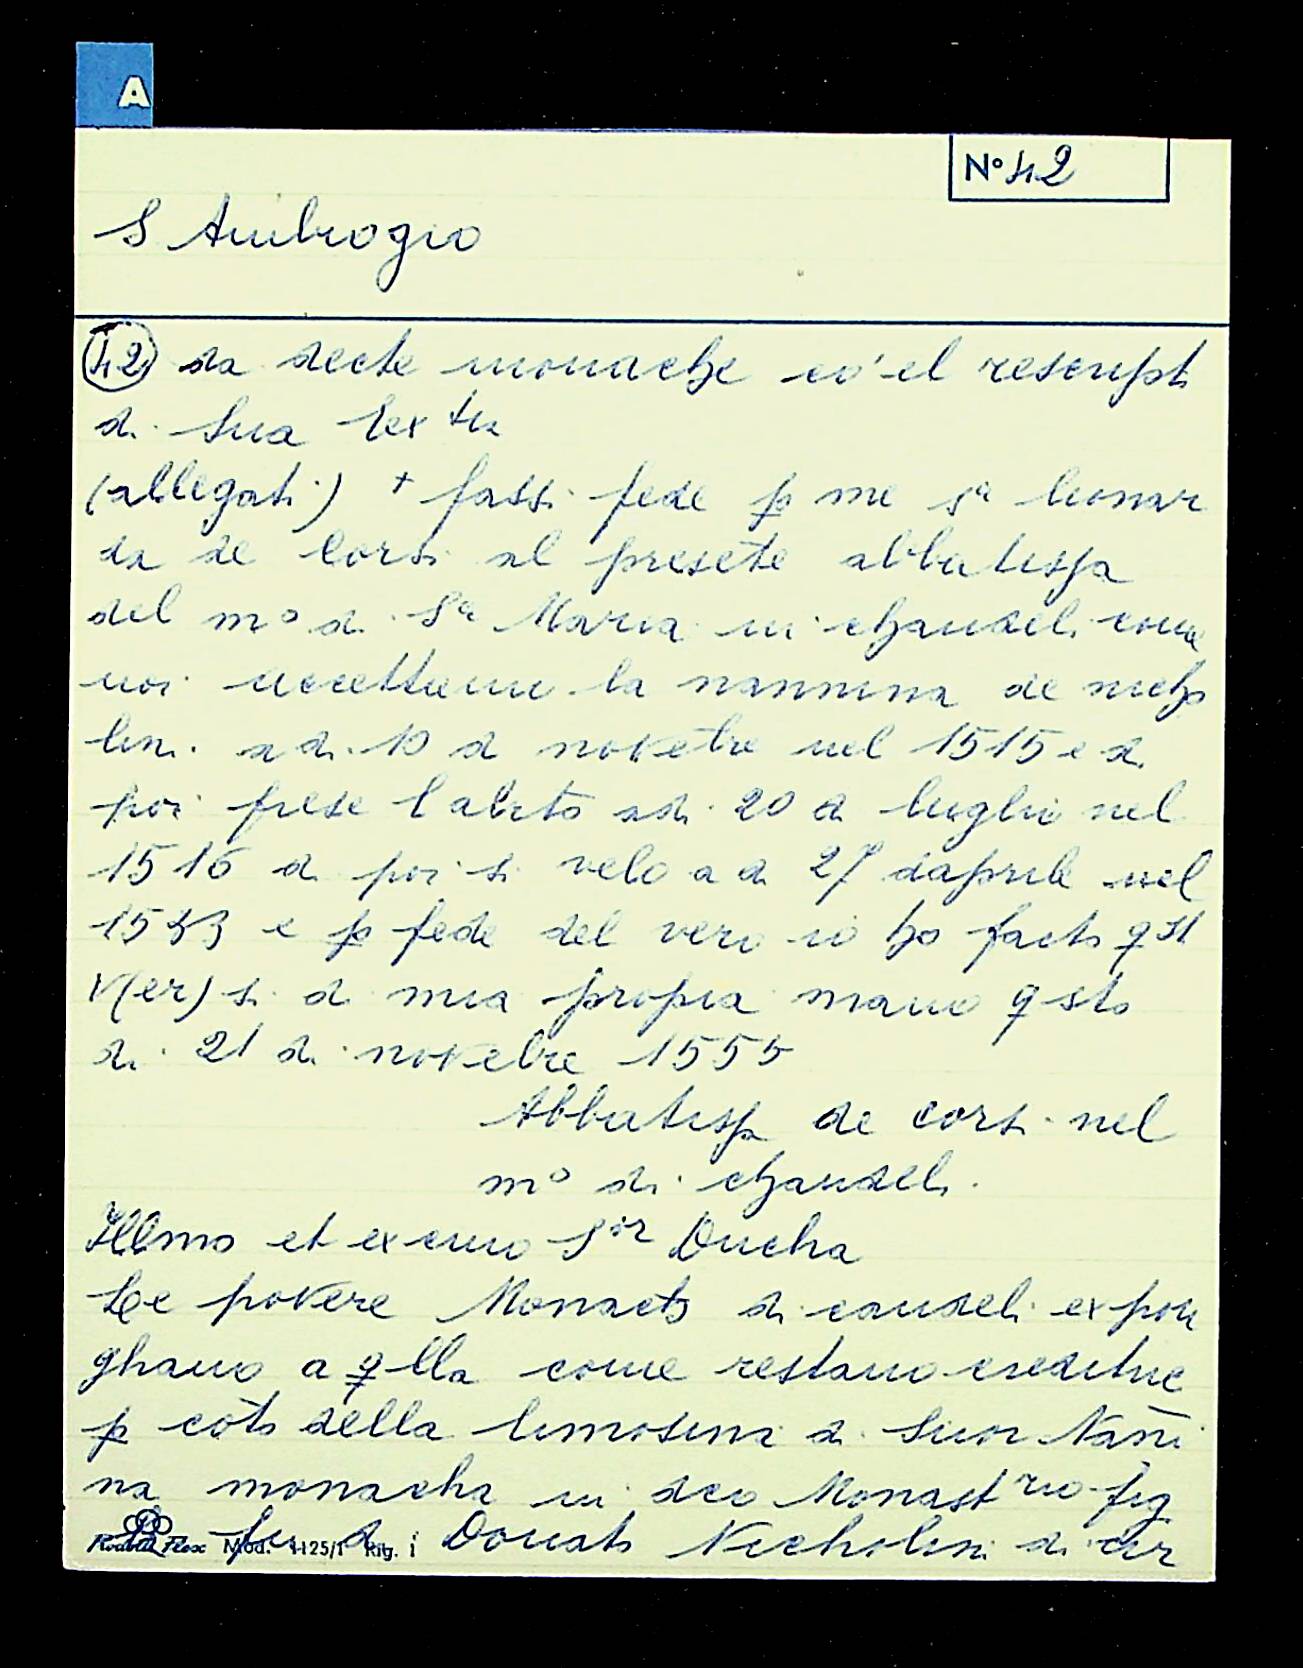 A
N° 42
S Ambrogio
42 da decte monache co' el rescript
di Sua Ex tia
(allegati) + fassi fede p me sa lionar
da de Corsi al presēte abbatissa
del mo di Sa Maria in chandeli come
noi accettamo la nannina de nicho
lini a di 10 di novēbre nel 1515 e di
poi prese l abito adi 20 di luglio nel
1516 di poi si velo a di 27 daprile nel
e p fede del vero io ho facto q st
v(er)si di mia propria mano q sto
di 21 di novēbre 1555
Abbatissa de corsi nel
mo di chandeli
Illmo et ex cmo Sor Ducha
Le povere Monache di candeli expon
ghano a q lla come restano creditrice
p cōto della limosina di Suor Nañi
na monacha in dco Monast rio fig
fu di Donato Nicholini di cir
Mod. 1125/1 Rig. i